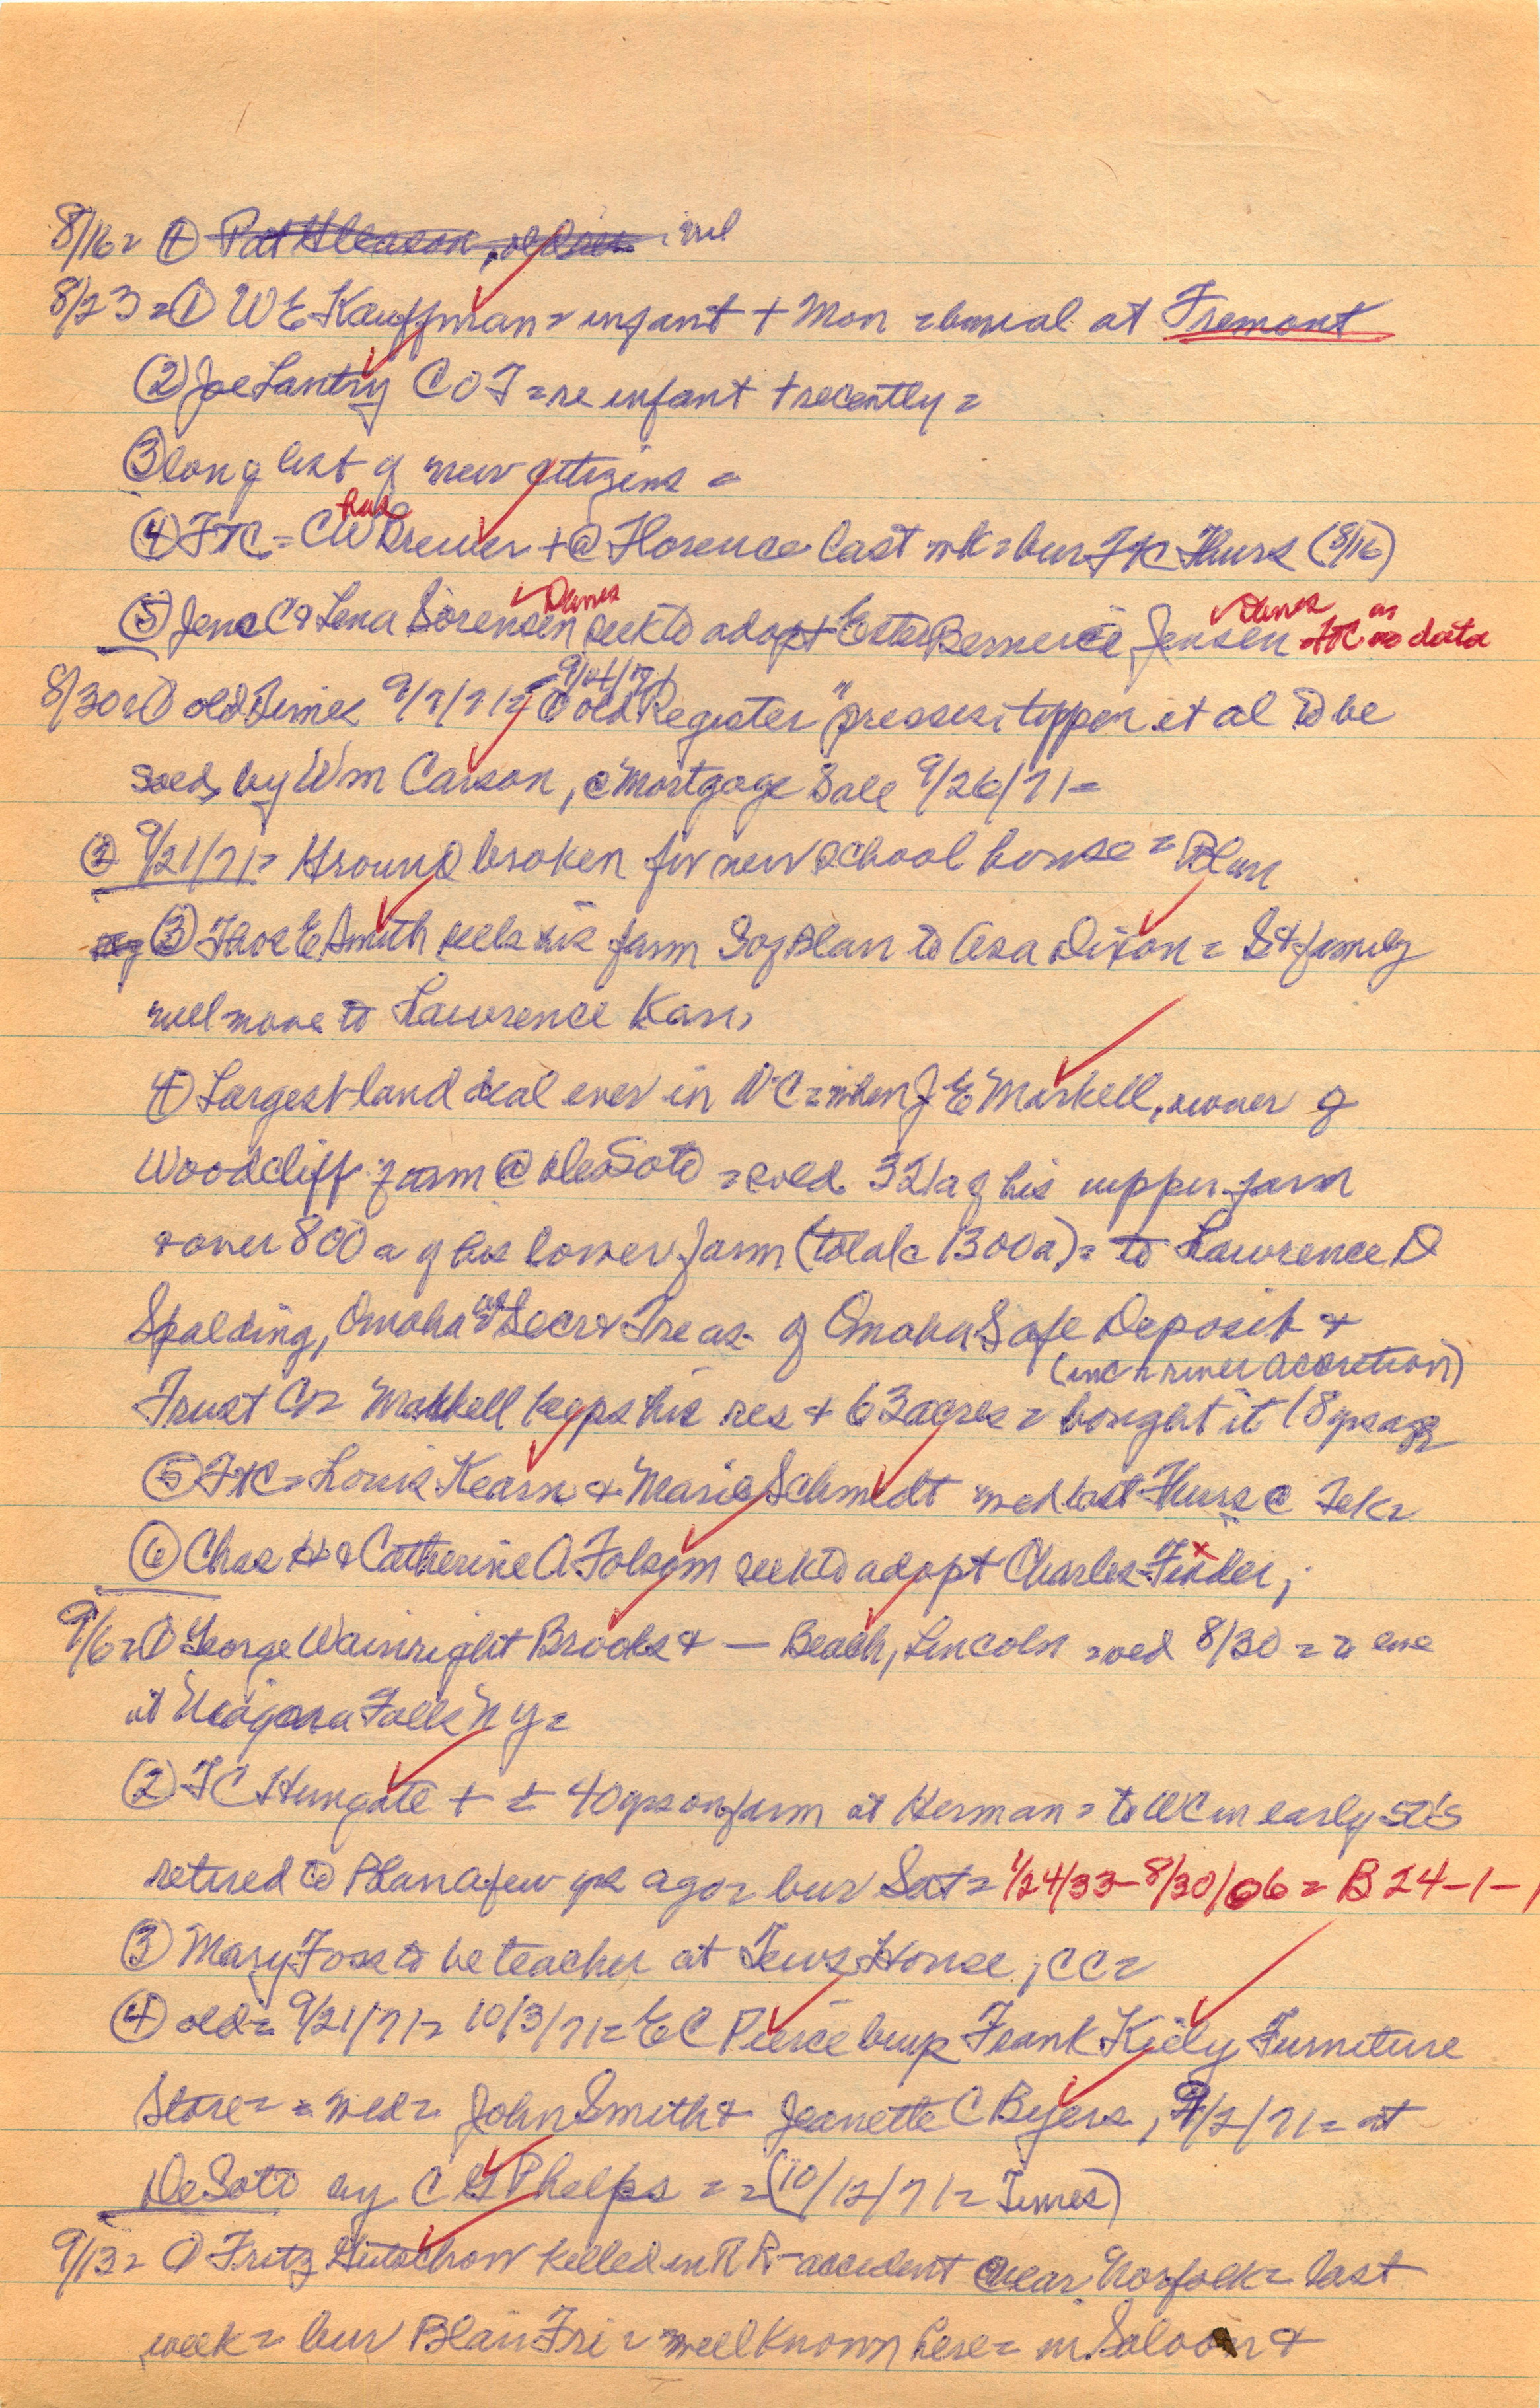 8/16 = ④ Pat Gleason, old
8/23 = ① W E Kauffman = infant + Mon = burial at Fremont
② Joe Lantry C O T = re infant + recently =
③ long list of new citizens =
④ Ft C = C W Brewer + @ Florence last wk = bur Ft C Thurs (8/16)
⑤ Jens C & Lena Sorensen Danes seek to adopt Ester Bernice Jensen Danes Ft C as no data
8/30 = ① old Times 9/7/71 = 9/14/71 old Register "presses, type et al to be
sold by Wm Carson, @ Mortgage Sale 9/26/71 =
② 9/21/71 = Ground broken for new school house = Blair
③ Thos E Smith sells his farm S of Blair to Asa Dixon = S & family
will move to Lawrence Kan,
④ Largest land deal ever in W C = when J E Markell, owner of
Woodcliff farm @ DeSoto = sold 321 a of his upper farm
& over 800 a of his lower farm (total c 1300 a) = to Lawrence D
Spalding, Omaha Secr & Treas. of Omaha Safe Deposit &
(inc river accretion)
Trust Co = Markell keeps his res + 63 acres = bought it 18 yrs ago
⑤ Ft C = Louis Kearn & Marie Schmidt wed last Thurs @ Tek =
⑥ Chas H & Catherine A Folsom seek to adopt Charles Finder;
9/6 = ① George Wainright Brooks & — Beach, Lincoln = wed 8/30 = r eve
at Niagara Falls N Y =
② T C Hungate + ± 40 yrs on farm at Herman = to W C in early 50's
retired to Blair a few yrs ago = bur Sat = 1/24/33 - 8/30/06 = B 24-1-1
③ Mary Foss to be teacher at Tews House, CC =
④ old = 9/21/71 = 10/3/71 = E C Pierce buys Frank Kiely Furniture
Store = = wed = John Smith & Jeanette C Byers, 9/2/71 = at
DeSoto by C G Phelps = = (10/12/71 = Times)
9/13 = ① Fritz killed in R R - accident near Norfolk = last
week = bur Blair Fri = well known here = in Saloon &